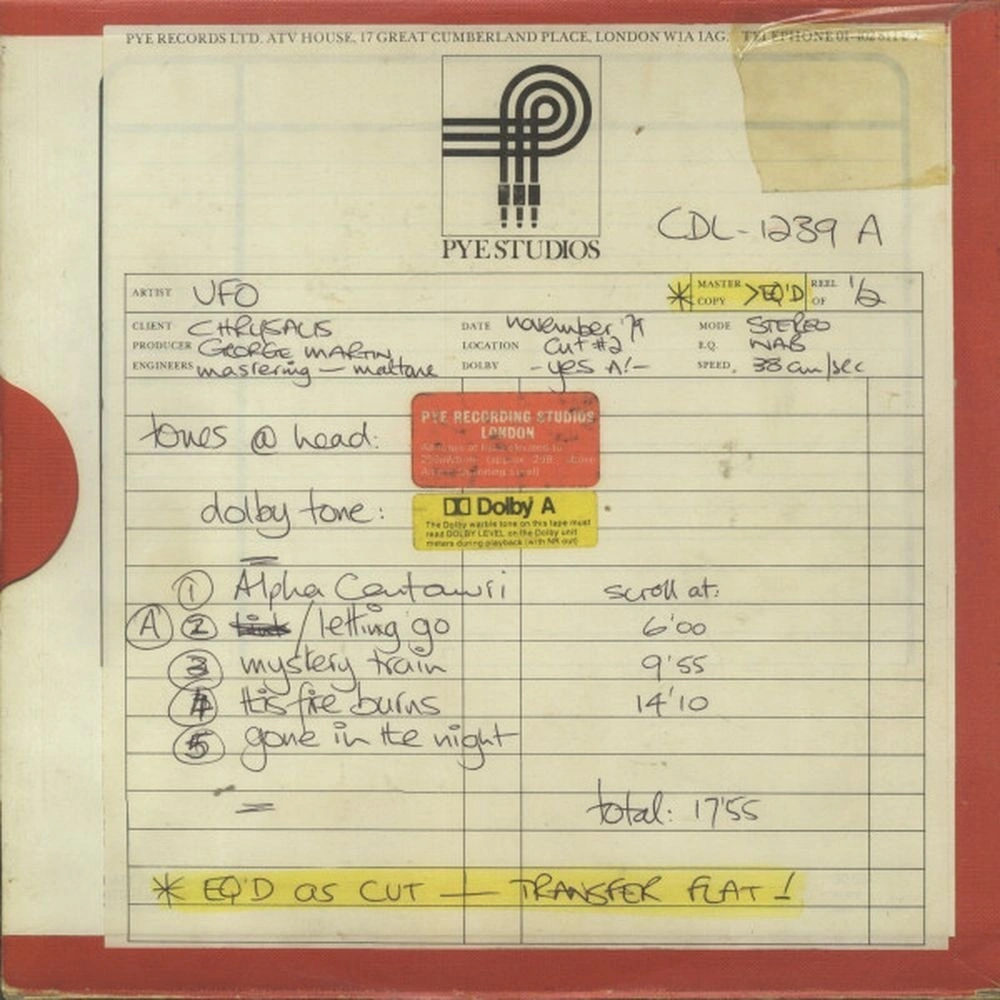 PYE RECORDS LTD. ATV HOUSE, 17 GREAT CUMBERLAND PLACE, LONDON W1A 1AG. TELEPHONE 01-402
PYE STUDIOS
CDL-1239 A
ARTIST UFO * MASTER COPY >EQ'D REEL OF 1/2
CLIENT CHRYSALIS DATE november '79 MODE STEREO
PRODUCER GEORGE MARTIN LOCATION cut #2 E.Q. NAB
ENGINEERS mastering - maltane DOLBY -yes A!- SPEED. 38 cm/sec
PYE RECORDING STUDIOS
LONDON
tones @ head:
Dolby A
The Dolby warble tone on this tape must
read DOLBY LEVEL on the Dolby unit
meters during playback (with NR out)
dolby tone:
1 Alpha Centauri scroll at:
A 2 / letting go 6'00
3 mystery train 9'55
4 this fire burns 14'10
5 gone in the night
total: 17'55
* EQ'D as CUT — TRANSFER FLAT!